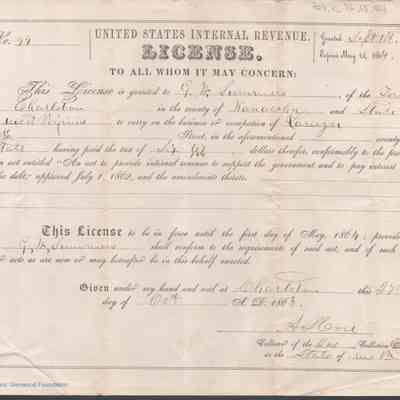 No. 99
UNITED STATES INTERNAL REVENUE.
Granted Sept 1st
Expires May 1st, 1864.
LICENSE.
TO ALL WHOM IT MAY CONCERN:
This License is granted to G. W. Summers of the
Charleston in the county of Kanawha and State
West Virginia to carry on the business or occupation of Lawyer
Street, in the aforementioned county
State having paid the tax of Six dollars therefor, conformably to the
an act entitled "An act to provide internal revenue to support the government and to pay interest
debt," approved July 1, 1862, and the amendments thereto.
This License to be in force until the first day of May, 1864; provided
G. W. Summers shall conform to the requirements of said act, and of such
acts as are now or may hereafter be in this behalf enacted.
Given under my hand and seal at Charleston this 27
day of Oct A. D. 1863.
Collector of the Collection
in the State of
Glenwood Foundation